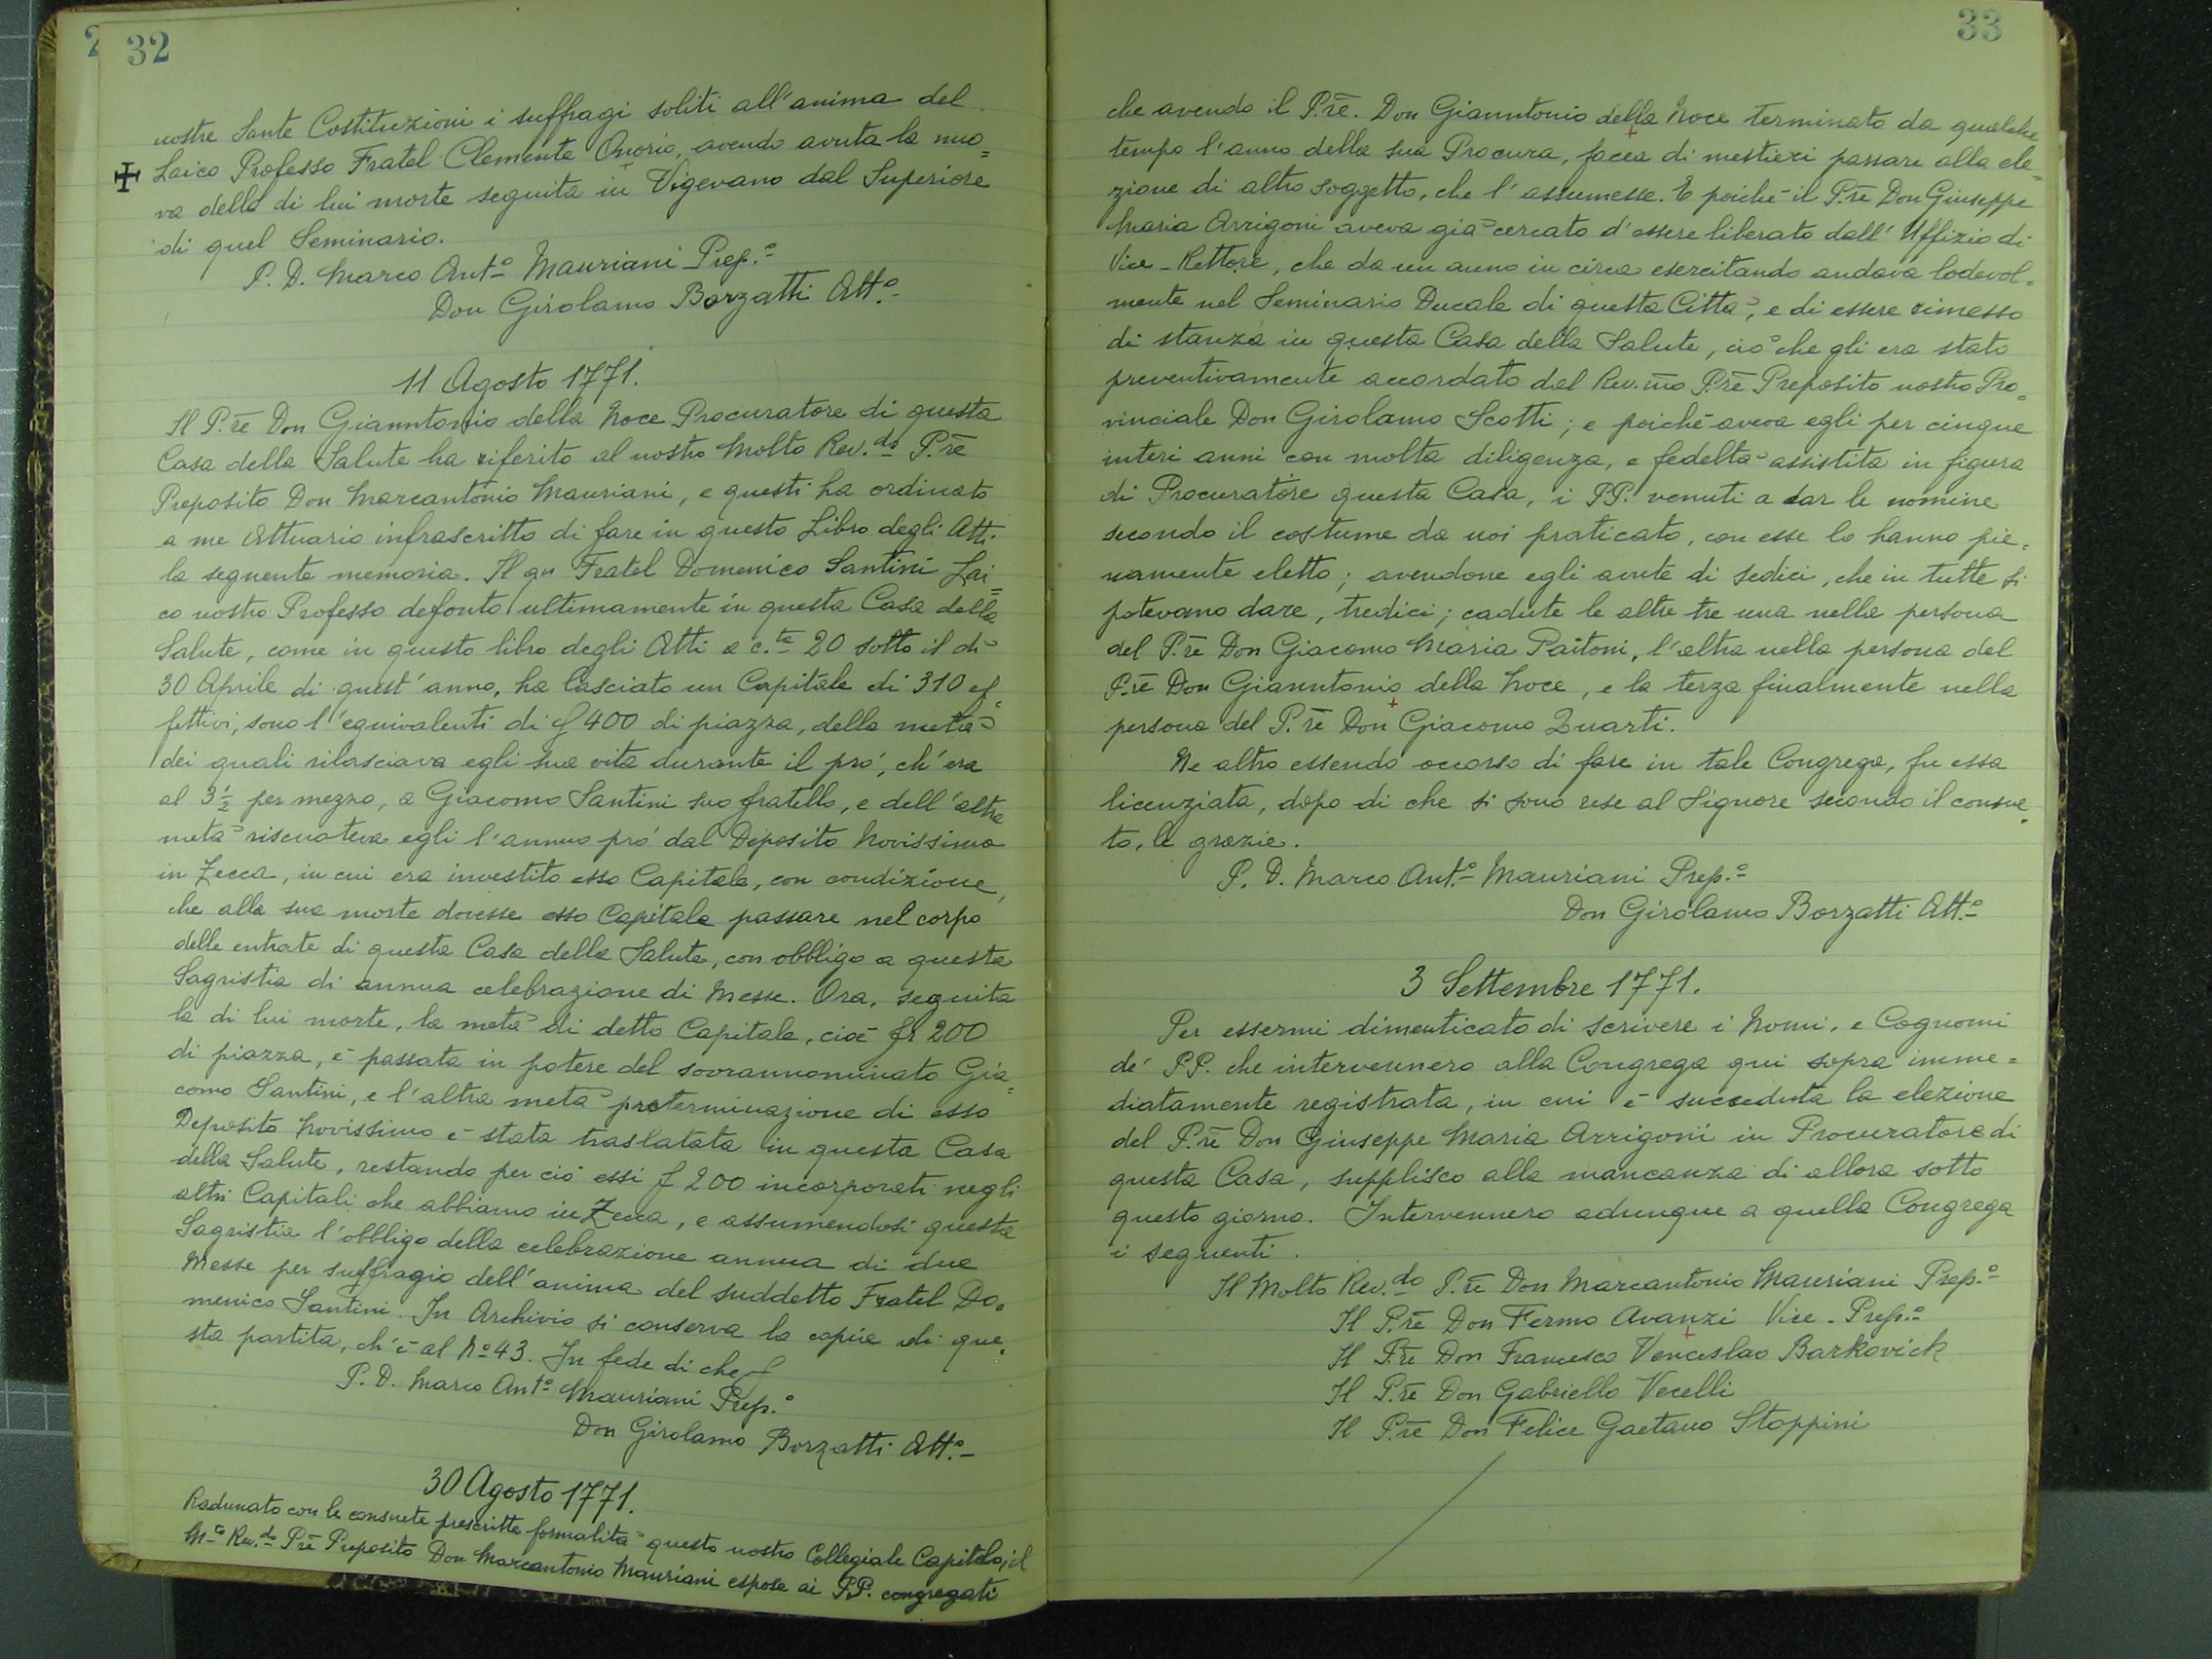 2
32
nostre Sante Costituzioni i suffragi soliti all'anima del
Laico Professo Fratel Clemente Onorio, avendo avuta la nuo=
va della di lui morte seguita in Vigevano dal Superiore
di quel Seminario.
P. D. Marco Ant.o Mauriani Prep.o
Don Girolamo Borzatti Att.o
11 Agosto 1771.
Il P.re Don Gianntonio della Noce Procuratore di questa
Casa della Salute ha riferito al nostro Molto Rev.do P.re
Preposito Don Marcantonio Mauriani, e questi ha ordinato
a me Attuario infrascritto di fare in questo Libro degli Atti
la seguente memoria. Il qu Fratel Domenico Santini Lai=
co nostro Professo defonto ultimamente in questa Casa della
Salute, come in questo libro degli Atti a c.te 20 sotto il dì
30 Aprile di quest'anno, ha lasciato un Capitale di 310 ef=
fettivi, sono l'equivalenti di f 400 di piazza, della metà
dei quali rilasciava egli sua vita durante il pró, ch'era
al 3 1/2 per mezzo, a Giacomo Santini suo fratello, e dell'altra
metà riscuoteva egli l'annuo pró dal Deposito Novissimo
in Zecca, in cui era investito esso Capitale, con condizione,
che alla sua morte dovesse esso Capitale passare nel corpo
delle entrate di questa Casa della Salute, con obbligo a questa
Sagristia di annua celebrazione di Messe. Ora, seguita
la di lui morte, la metà di detto Capitale, cioè fr 200
di piazza, è passata in potere del sovrannominato Gia=
como Santini, e l'altra metà proterminazione di esso
Deposito Novissimo è stata traslatata in questa Casa
della Salute, restando per ciò essi f 200 incorporati negli
altri Capitali che abbiamo in Zecca, e assumendosi questa
Sagristia l'obbligo della celebrazione annua di due
Messe per suffragio dell'anima del suddetto Fratel Do=
menico Santini. In Archivio si conserva la copia di que=
sta partita, ch'è al No 43. In fede di che f
P. D. Marco Ant.o Mauriani Prep.o
Don Girolamo Borzatti Att.o
30 Agosto 1771.
Radunato con le consuete prescritte formalità questo nostro Collegiale Capitolo, il
M.o Rev.do P.re Preposito Don Marcantonio Mauriani espose ai PP. congregati
33
che avendo il P.re Don Gianntonio della Noce terminato da qualche
tempo l'anno della sua Procura, facea di mestieri passare alla ele=
zione di altro soggetto, che l'assumesse. E poiché il P.re Don Giuseppe
Maria Arrigoni aveva già cercato d'essere liberato dall'Uffizio di
Vice-Rettore, che da un anno in circa esercitando andava lodevol=
mente nel Seminario Ducale di questa Città, e di essere rimesso
di stanza in questa Casa della Salute, ciò che gli era stato
preventivamente accordato dal Rev.mo P.re Preposito nostro Pro=
vinciale Don Girolamo Scotti; e poiché aveva egli per cinque
interi anni con molta diligenza, e fedeltà assistita in figura
di Procuratore questa Casa, i PP. venuti a dar le nomine
secondo il costume da noi praticato, con esse lo hanno pie=
namente eletto; avendone egli avute di sedici, che in tutte si
potevano dare, tredici; cadute le altre tre una nella persona
del P.re Don Giacomo Maria Paitoni, l'altra nella persona del
P.re Don Gianntonio della Noce, e la terza finalmente nella
persona del P.re Don Giacomo Quarti.
Ne altro essendo occorso di fare in tale Congrega, fu essa
licenziata, dopo di che si sono rese al Signore secondo il consue=
to, le grazie.
P. D. Marco Ant.o Mauriani Prep.o
Don Girolamo Borzatti Att.o
3 Settembre 1771.
Per essermi dimenticato di scrivere i Nomi, e Cognomi
de' PP. che intervennero alla Congrega qui sopra imme=
diatamente registrata, in cui è succeduta la elezione
del P.re Don Giuseppe Maria Arrigoni in Procuratore di
questa Casa, supplisco alla mancanza di allora sotto
questo giorno. Intervennero adunque a quella Congrega
i seguenti.
Il Molto Rev.do P.re Don Marcantonio Mauriani Prep.o
Il P.re Don Fermo Avanzi Vice-Prep.o
Il P.re Don Francesco Venceslao Barkovick
Il P.re Don Gabriello Vecelli
Il P.re Don Felice Gaetano Stoppini